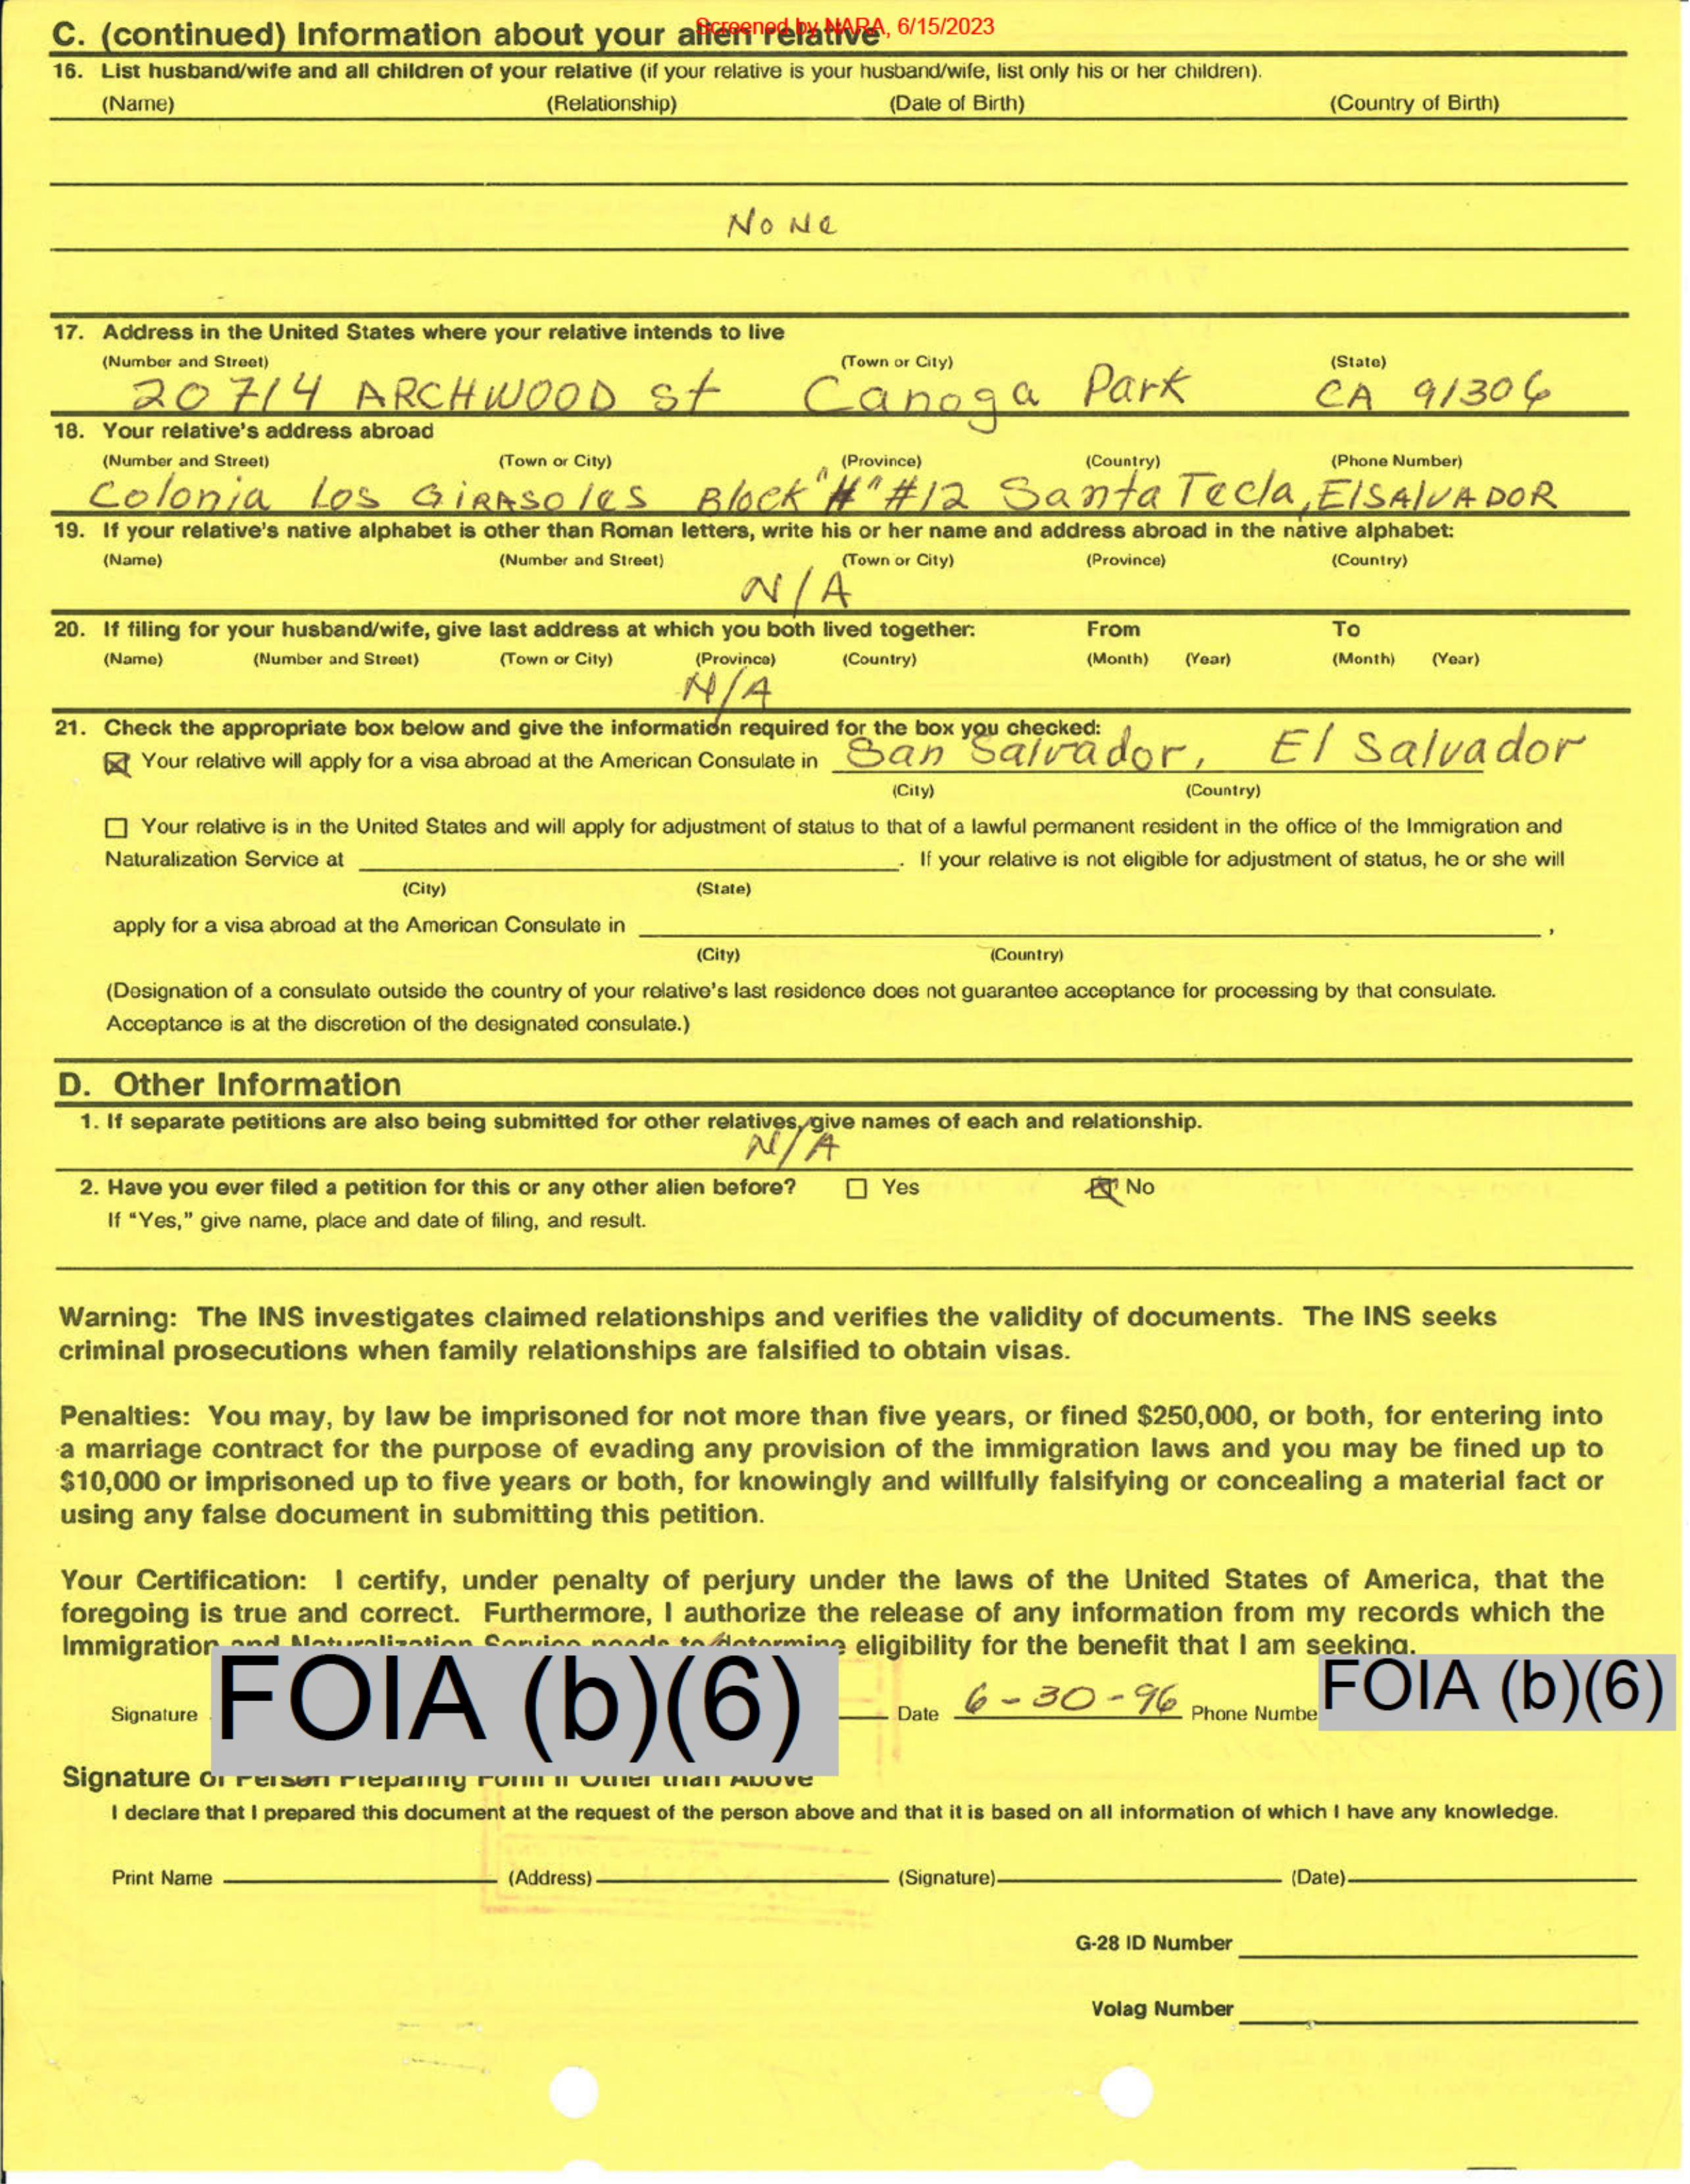 Screened by NARA, 6/15/2023
C. (continued) Information about your alien relative
16. List husband/wife and all children of your relative (if your relative is your husband/wife, list only his or her children).
(Name) (Relationship) (Date of Birth) (Country of Birth)
None
17. Address in the United States where your relative intends to live
(Number and Street) (Town or City) (State)
20714 ARCHWOOD St Canoga Park CA 91306
18. Your relative's address abroad
(Number and Street) (Town or City) (Province) (Country) (Phone Number)
Colonia Los GIRASOLES Block "H" #12 Santa Tecla, El SALVADOR
19. If your relative's native alphabet is other than Roman letters, write his or her name and address abroad in the native alphabet:
(Name) (Number and Street) (Town or City) (Province) (Country)
N/A
20. If filing for your husband/wife, give last address at which you both lived together: From To
(Name) (Number and Street) (Town or City) (Province) (Country) (Month) (Year) (Month) (Year)
N/A
21. Check the appropriate box below and give the information required for the box you checked:
Your relative will apply for a visa abroad at the American Consulate in San Salvador, El Salvador
(City) (Country)
Your relative is in the United States and will apply for adjustment of status to that of a lawful permanent resident in the office of the Immigration and
Naturalization Service at . If your relative is not eligible for adjustment of status, he or she will
(City) (State)
apply for a visa abroad at the American Consulate in ,
(City) (Country)
(Designation of a consulate outside the country of your relative's last residence does not guarantee acceptance for processing by that consulate.
Acceptance is at the discretion of the designated consulate.)
D. Other Information
1. If separate petitions are also being submitted for other relatives, give names of each and relationship.
N/A
2. Have you ever filed a petition for this or any other alien before? Yes No
If "Yes," give name, place and date of filing, and result.
Warning: The INS investigates claimed relationships and verifies the validity of documents. The INS seeks
criminal prosecutions when family relationships are falsified to obtain visas.
Penalties: You may, by law be imprisoned for not more than five years, or fined $250,000, or both, for entering into
a marriage contract for the purpose of evading any provision of the immigration laws and you may be fined up to
$10,000 or imprisoned up to five years or both, for knowingly and willfully falsifying or concealing a material fact or
using any false document in submitting this petition.
Your Certification: I certify, under penalty of perjury under the laws of the United States of America, that the
foregoing is true and correct. Furthermore, I authorize the release of any information from my records which the
Immigration and Naturalization Service needs to determine eligibility for the benefit that I am seeking.
Signature FOIA (b)(6) Date 6-30-96 Phone Numbe FOIA (b)(6)
Signature of Person Preparing Form if Other than Above
I declare that I prepared this document at the request of the person above and that it is based on all information of which I have any knowledge.
Print Name (Address) (Signature) (Date)
G-28 ID Number
Volag Number